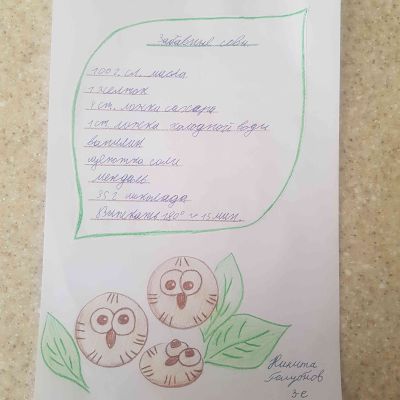 Забавные совы
100 г сл. масла
1 желток
4 ст. ложки сахара
1 ст. ложка холодной воды
ванилин
щепотка соли
миндаль
35 г шоколада
Выпекать 180° ~ 15 мин.
Никита
Голубов
3-Е